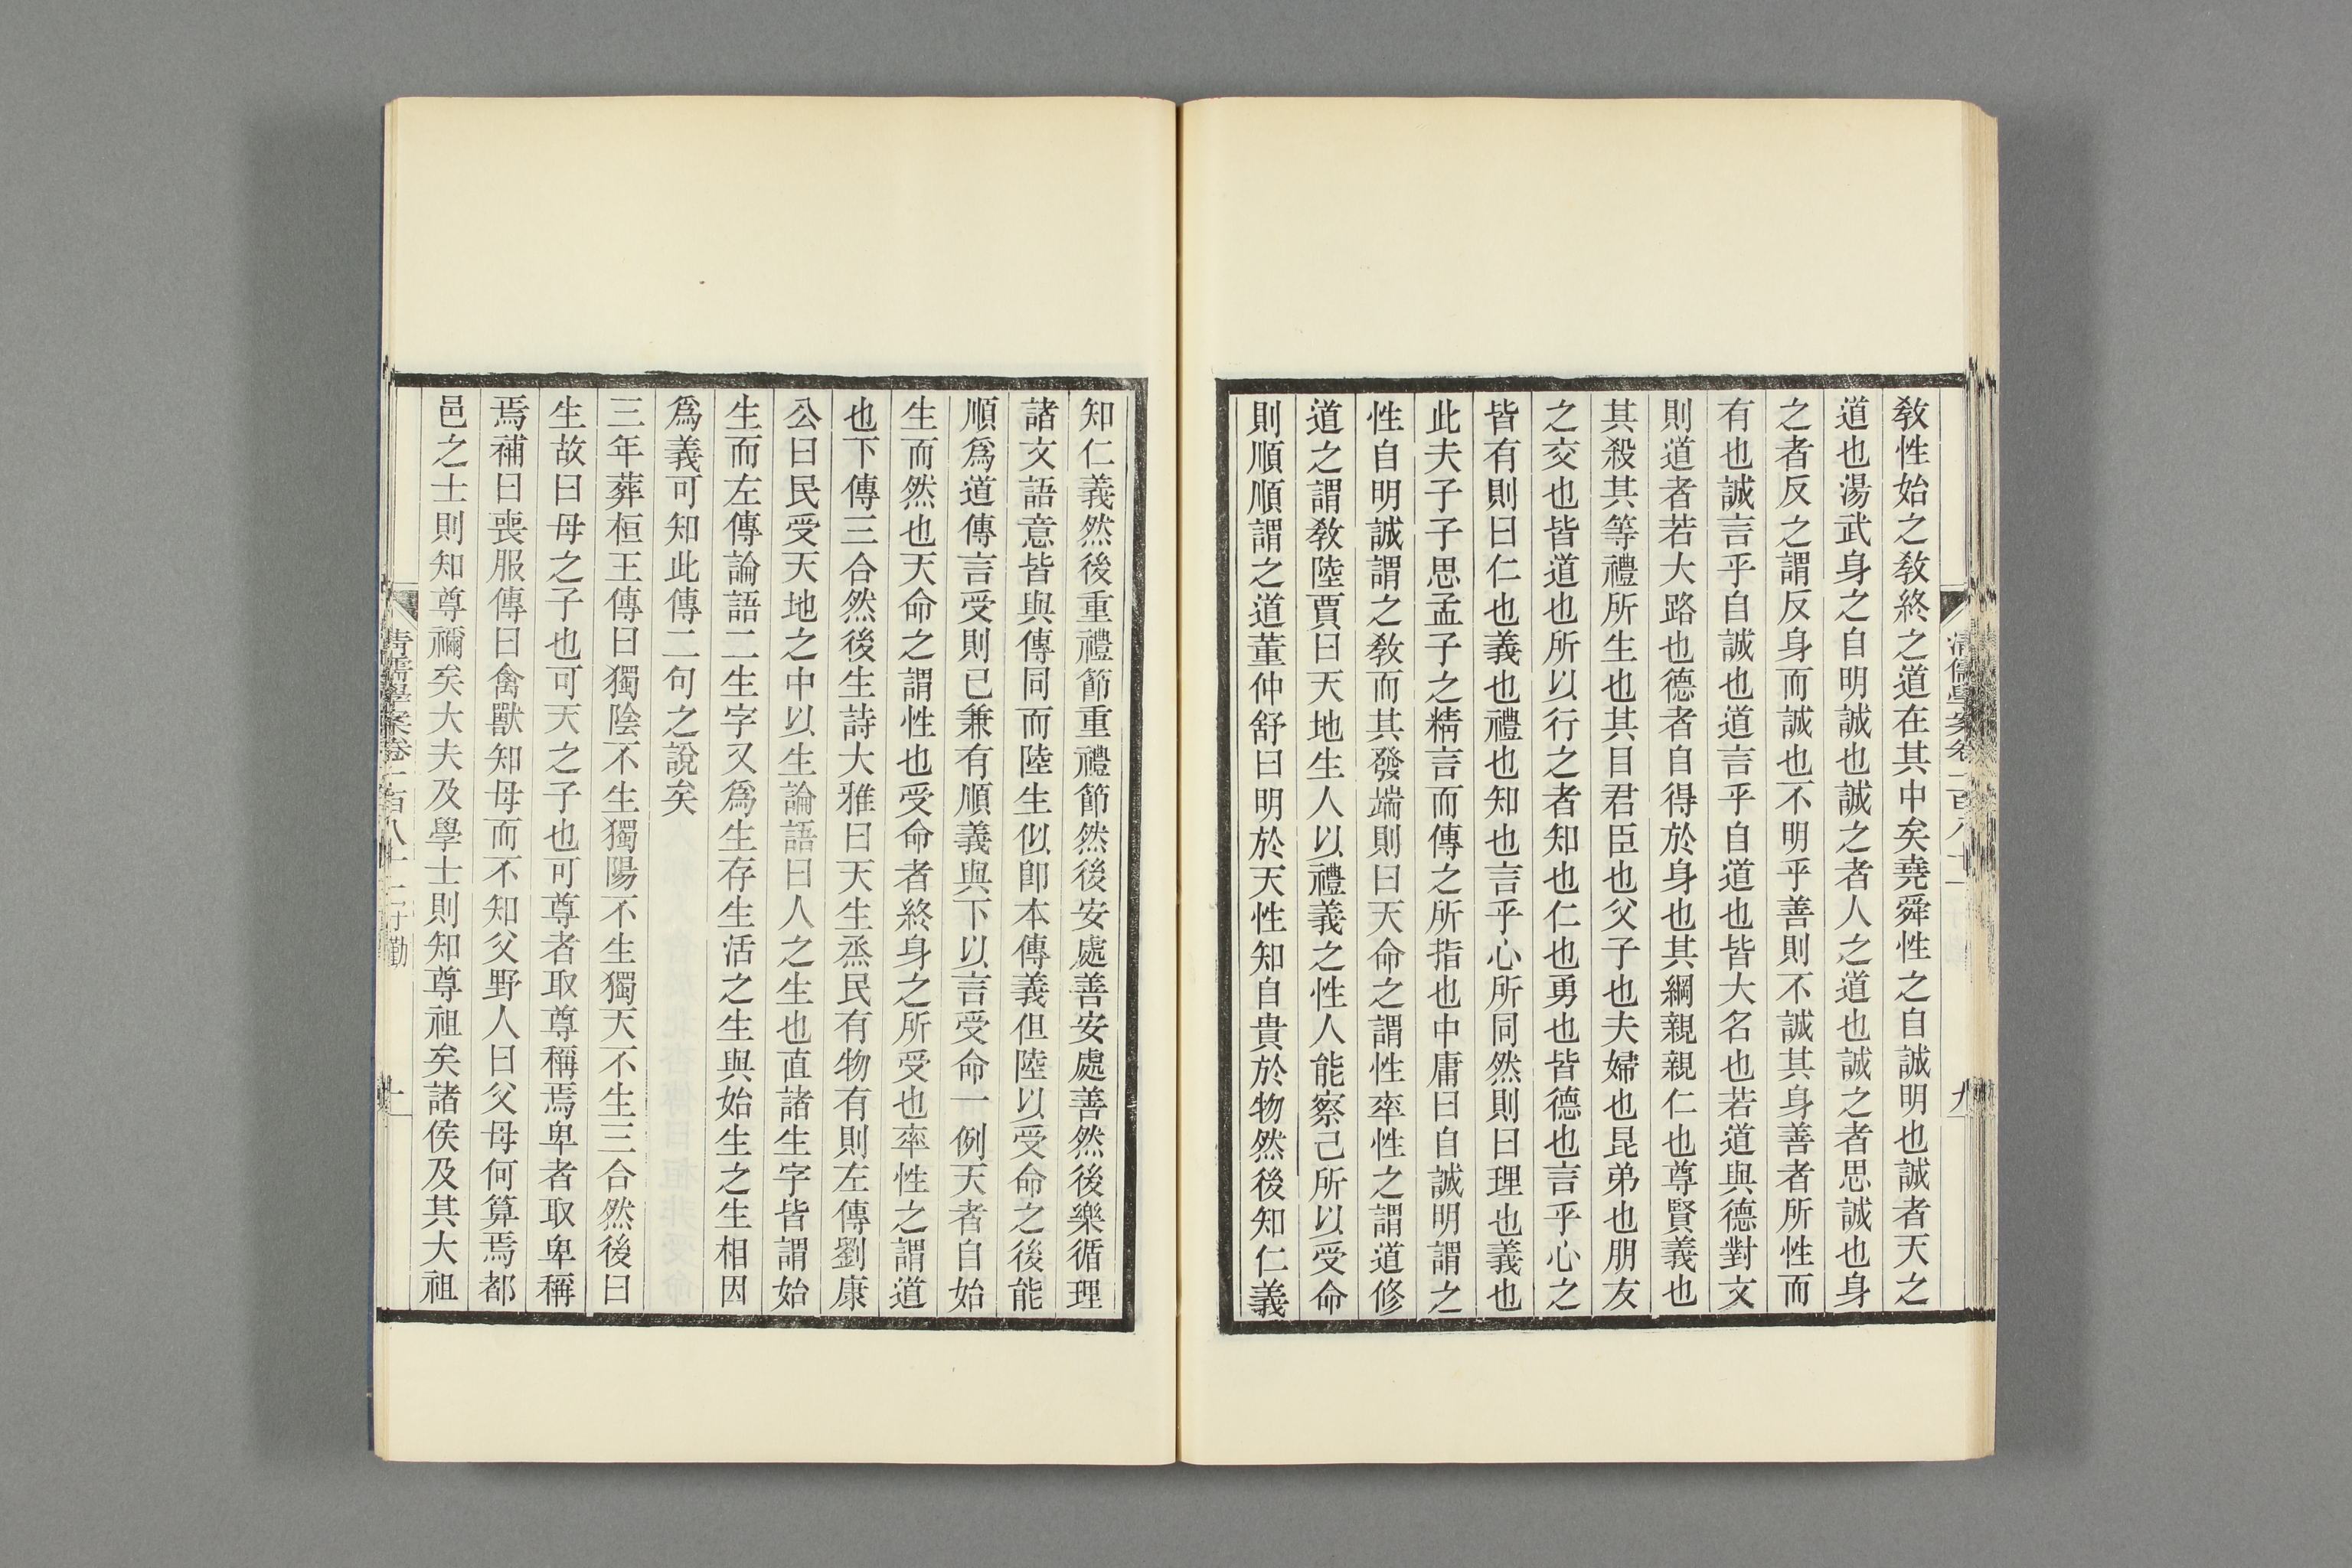 教性始之教終之道在其中矣堯舜性之自誠明也誠者天之
道也湯武身之自明誠也誠之者人之道也誠之者思誠也身
之者反之謂反身而誠也不明乎善則不誠其身善者所性而
有也誠言乎自誠也道言乎自道也皆大名也若道與德對文
則道者若大路也德者自得於身也其綱親親仁也尊賢義也
其殺其等禮所生也其目君臣也父子也夫婦也昆弟也朋友
之交也皆道也所以行之者知也仁也勇也皆德也言乎心之
皆有則曰仁也義也禮也知也言乎心所同然則曰理也義也
此夫子子思孟子之精言而傳之所指也中庸曰自誠明謂之
性自明誠謂之教而其發端則曰天命之謂性率性之謂道修
道之謂教陸賈曰天地生人以禮義之性人能察己所以受命
則順順謂之道董仲舒曰明於天性知自貴於物然後知仁義
知仁義然後重禮節重禮節然後安處善安處善然後樂循理
諸文語意皆與傳同而陸生似即本傳義但陸以受命之後能
順爲道傳言受則已兼有順義與下以言受命一例天者自始
生而然也天命之謂性也受命者終身之所受也率性之謂道
也下傳三合然後生詩大雅曰天生烝民有物有則左傳劉康
公曰民受天地之中以生論語曰人之生也直諸生字皆謂始
生而左傳論語二生字又爲生存生活之生與始生之生相因
爲義可知此傳二句之說矣
三年葬桓王傳曰獨陰不生獨陽不生獨天不生三合然後曰
生故曰母之子也可天之子也可尊者取尊稱焉卑者取卑稱
焉補曰喪服傳曰禽獸知母而不知父野人曰父母何算焉都
邑之士則知尊禰矣大夫及學士則知尊祖矣諸侯及其大祖
清儒學案卷一百八十一
九
清儒學案卷一百八十一
十